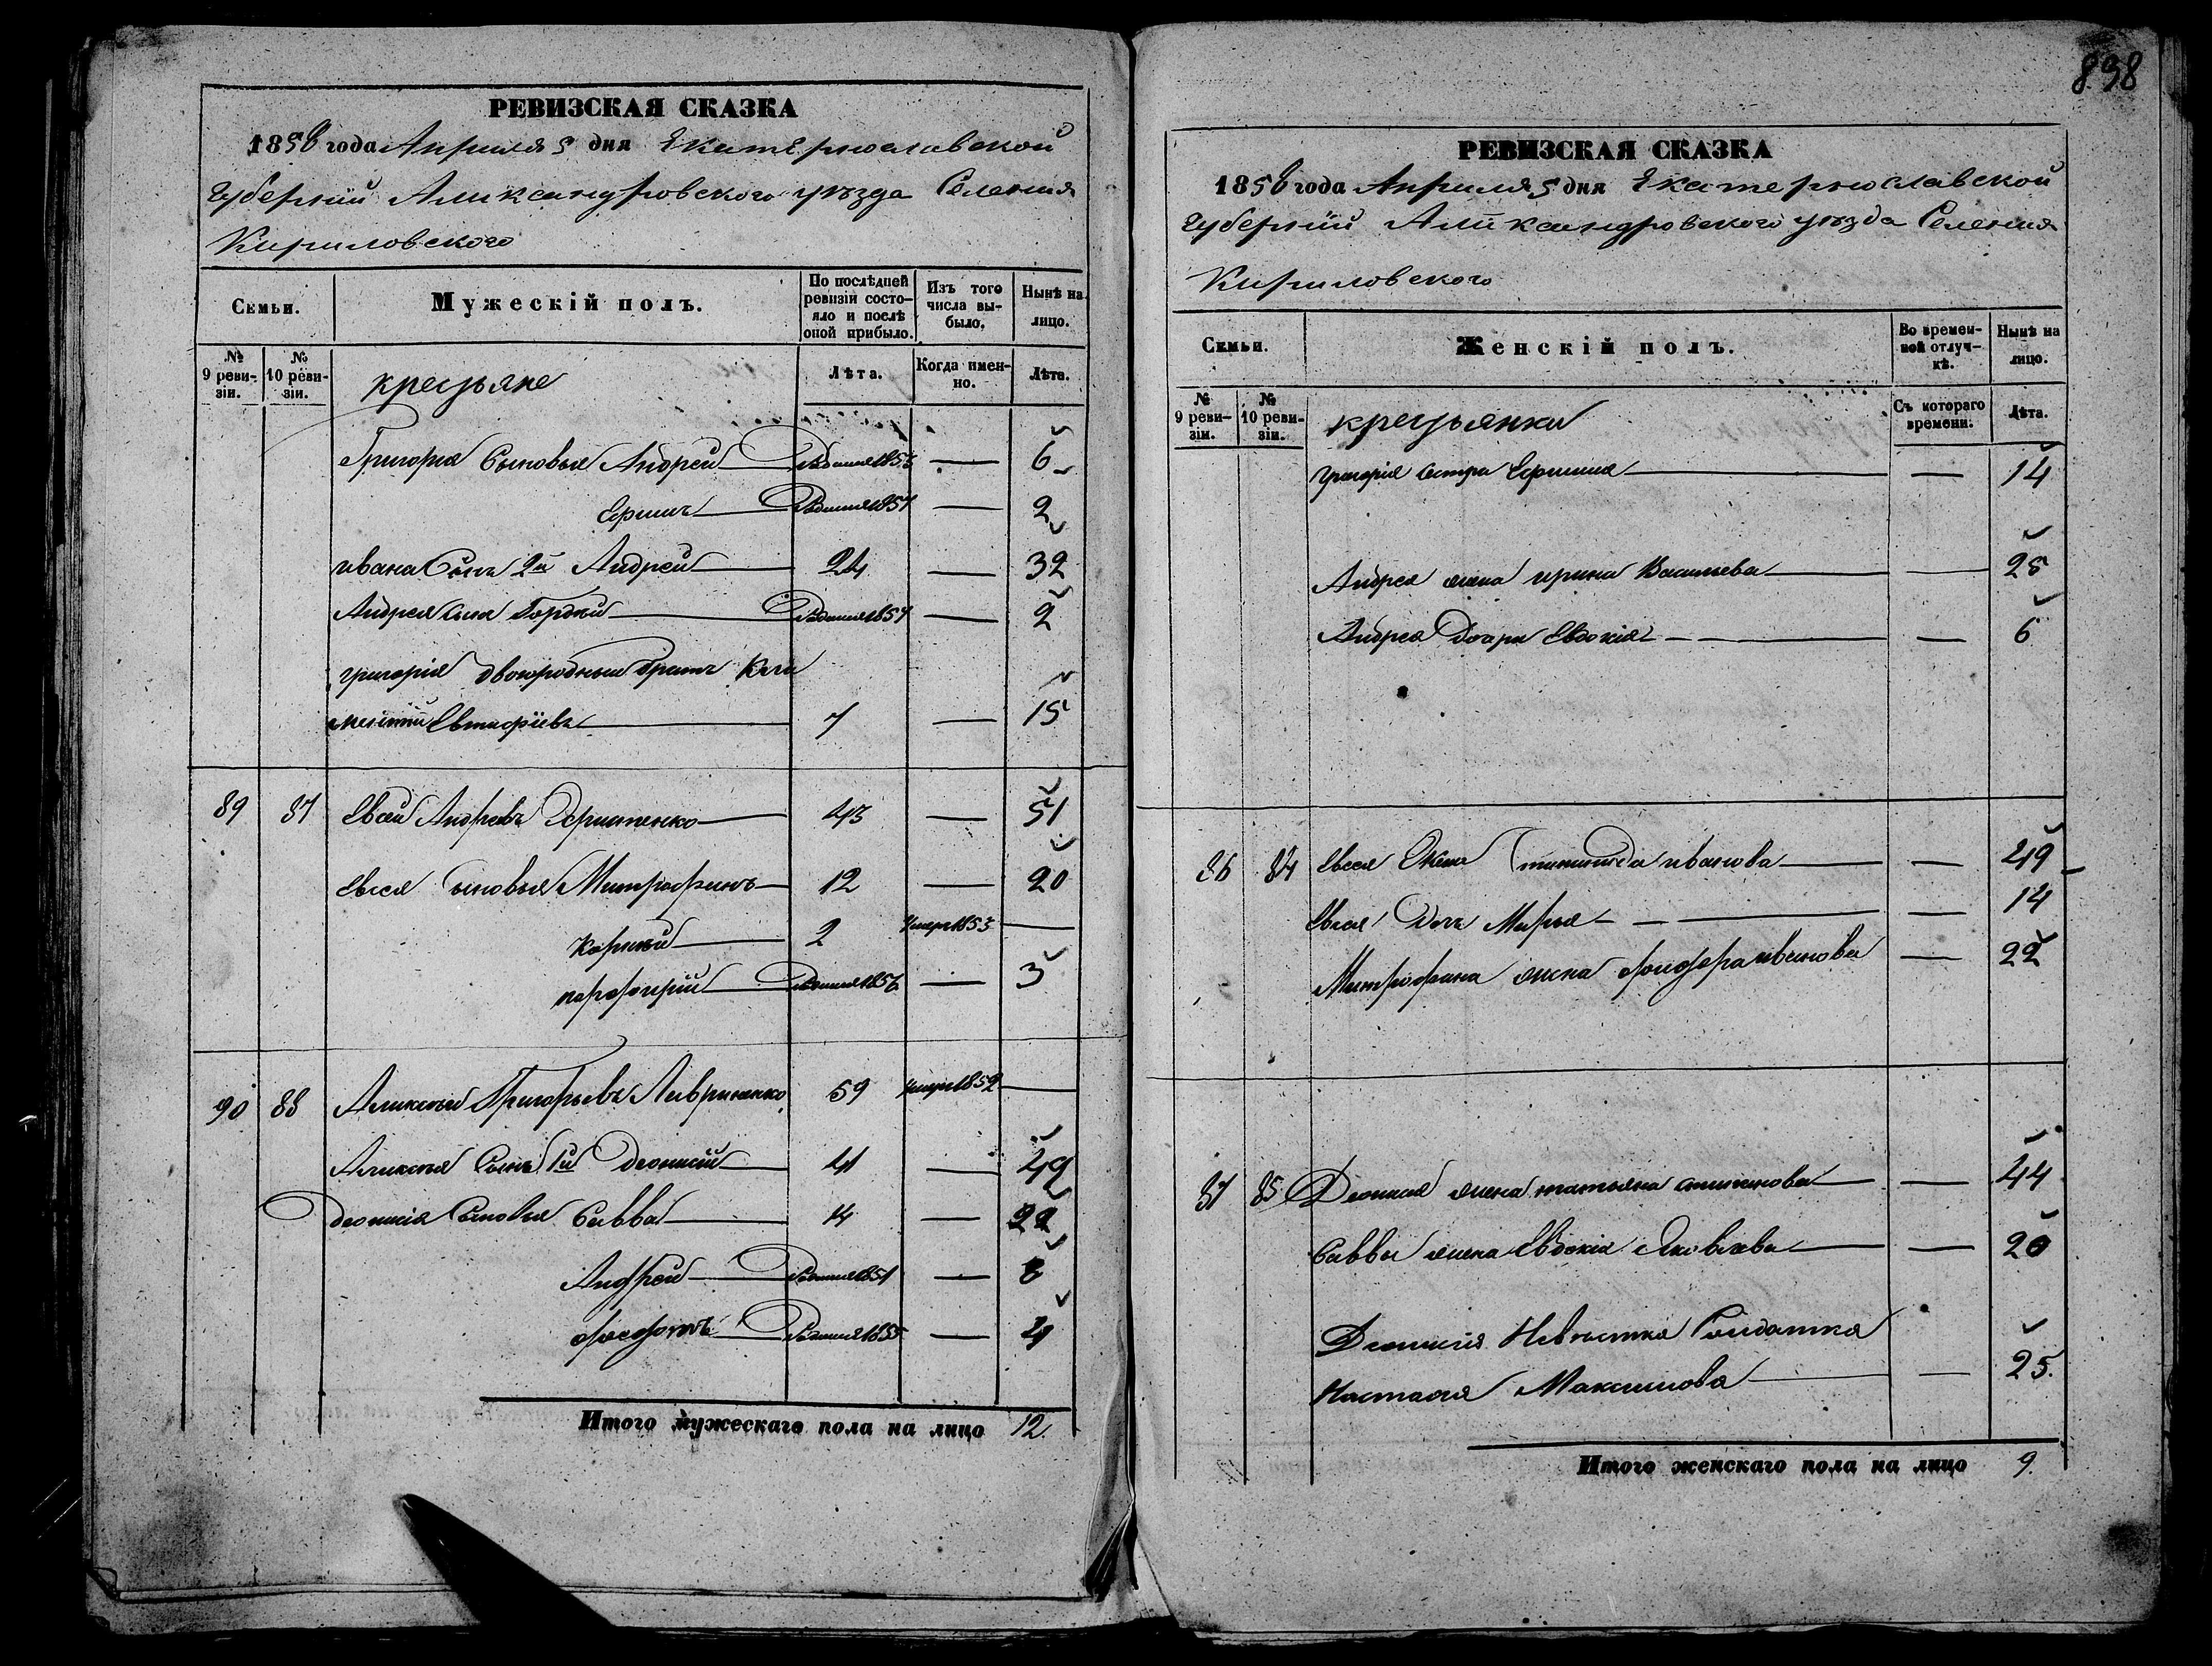 898
РЕВИЗСКАЯ СКАЗКА
1858 года Апреля 5 дня Екатеринославской
Губернiи Александровского уѣзда Селения
Кириловского
Семьи.
Мужескій полъ.
По послѣдней ревизіи состояло и послѣ оной прибыло.
Изъ того числа выбыло.
Нынѣ на лицо.
№ 9 ревизіи.
№ 10 ревизіи.
крестьяне
Лѣта.
Когда именно.
Лѣта.
Григория Сыновья Андрей Родился 1853 — 6
Ефимъ Родился 1857 — 2
ивана Сынъ 2й Андрей 24 — 32
Андрея сынъ Гордѣй Родился 1857 — 2
григорія двоюродный братъ
Евтифіевъ 7 — 15
89 87 Евсей Андреевъ 43 — 51
Евсея Сыновья Митрофанъ 12 — 20
Корнѣй 2 Умеръ 1853 —
порфирій Родился 1856 — 3
90 88 Алексѣй Григорьевъ Лавриненко 59 Умеръ 1852 —
Алексѣя Сынъ 1й Деонисій 41 — 49
Деонисія Сыновья Савва 14 — 22
Андрей Родился 1851 — 8
Родился 1855 — 4
Итого мужескаго пола на лицо 12.
РЕВИЗСКАЯ СКАЗКА
1858 года Апреля 5 дня Екатеринославской
Губернiи Александровского уѣзда Селения
Кириловского
Семьи.
Женскій полъ.
Во временной отлучкѣ.
Нынѣ на лицо.
№ 9 ревизіи.
№ 10 ревизіи.
крестьянки
Съ котораго времени.
Лѣта.
Григорія сестра Ефимия — 14
Андрея жена ирина Васильева — 25
Андрея Дочри Евдокія — 6
86 84 Евсея Жена иванова — 49
Евсея Дочь Марья — 14
Митрофана жена иванова — 22
87 85 Деонисия жена татьяна — 44
Саввы жена Евдокія Яковлева — 20
Деонисія Невѣстка Солдатка
Настасия Максимова — 25.
Итого женскаго пола на лицо 9.